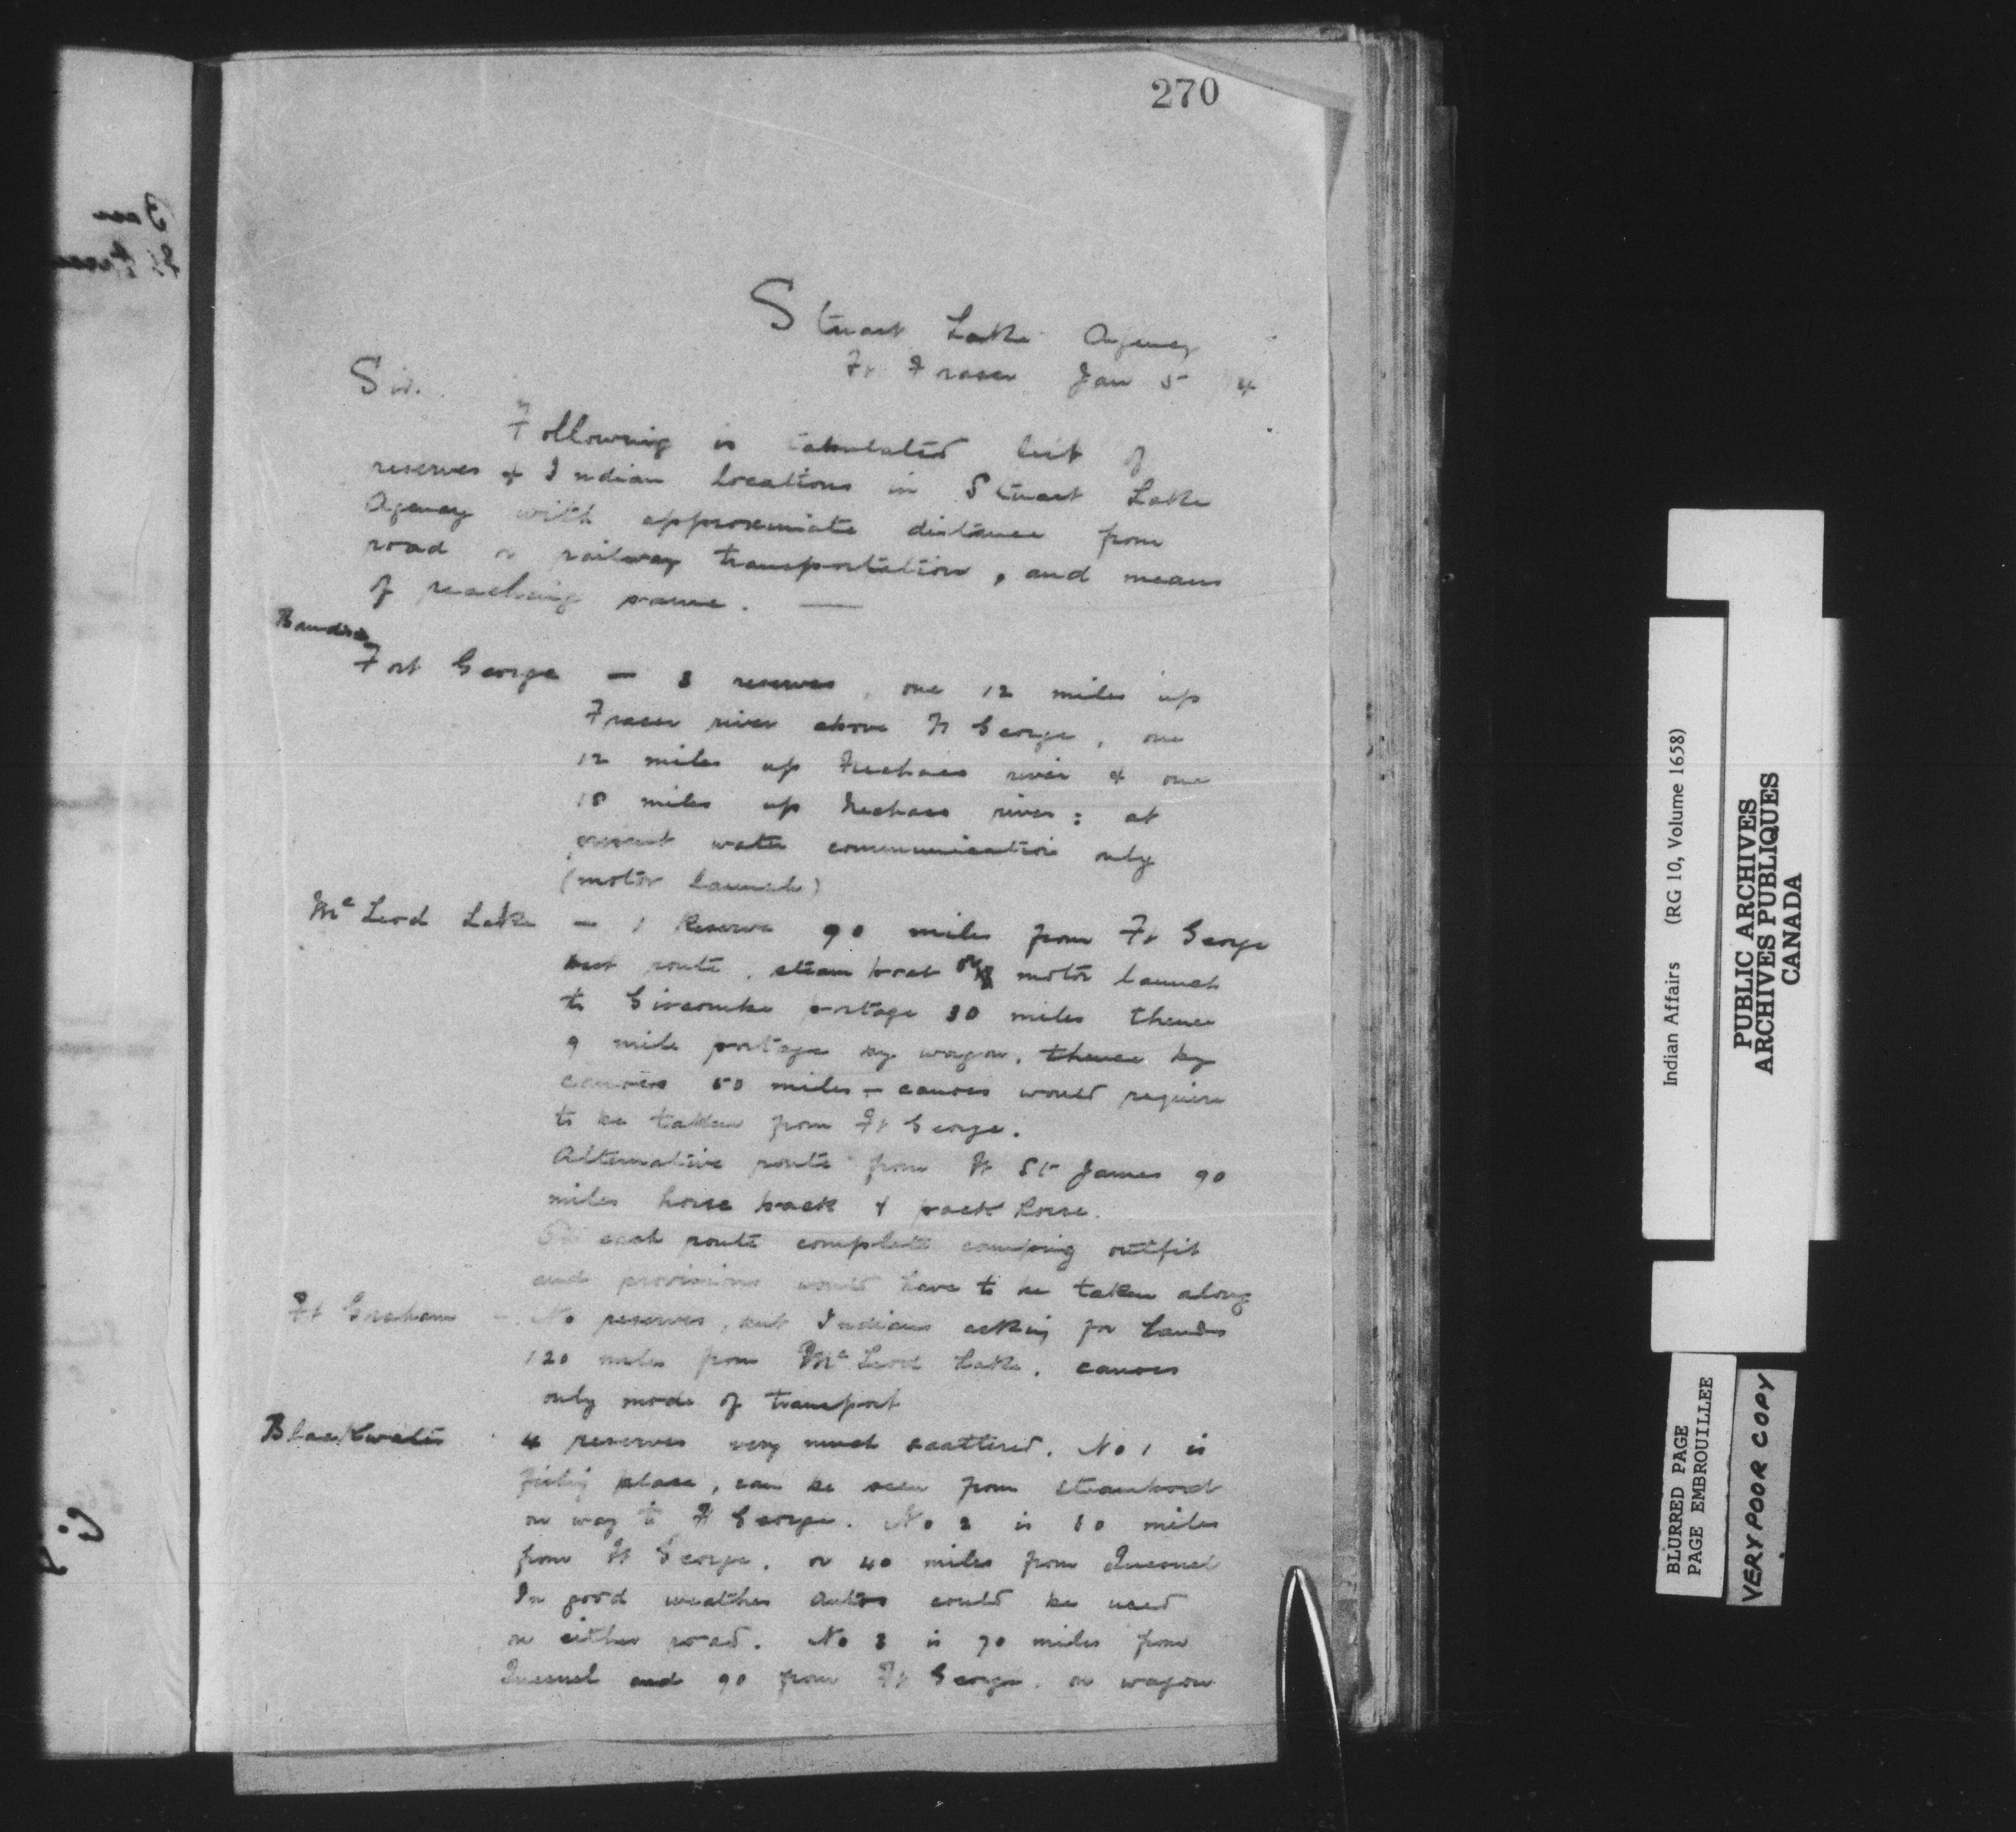 270
Stuart Lake Agency
Ft Fraser Jan 5 4
Sir.
Following is tabulated list of
reserves & Indian locations in Stuart Lake
Agency with approximate distance from
road or railway transportation, and means
of reaching same. —
Fort George — 3 reserves, one 12 miles up
Fraser river above Ft George, one
12 miles up Nechaco river & one
18 miles up Nechaco river: at
present water communication only
(motor launch)
Mc Leod Lake — 1 Reserve 90 miles from Ft George
best route, steam boat or motor launch
to Giscombe portage 30 miles thence
9 mile portage by wagon, thence by
canoes 50 miles – canoes would require
to be taken from Ft George.
Alternative route from Ft St James 90
miles horse back & pack horse.
On each route complete camping outfit
and provisions would have to be taken along
Ft Graham — No reserves, but Indians asking for lands
120 miles from Mc Leod Lake, canoes
only mode of transport
Blackwater 4 reserves very much scattered. No 1 is
fishing place, can be seen from steamboat
on way to Ft George. No 2 is 60 miles
from Ft George, or 40 miles from Quesnel
In good weather autos could be used
on either road. No 3 is 70 miles from
Quesnel and 90 from Ft George, on wagon
Indian Affairs (RG 10, Volume 1658)
PUBLIC ARCHIVES
ARCHIVES PUBLIQUES
CANADA
BLURRED PAGE
PAGE EMBROUILLEE
VERY POOR COPY